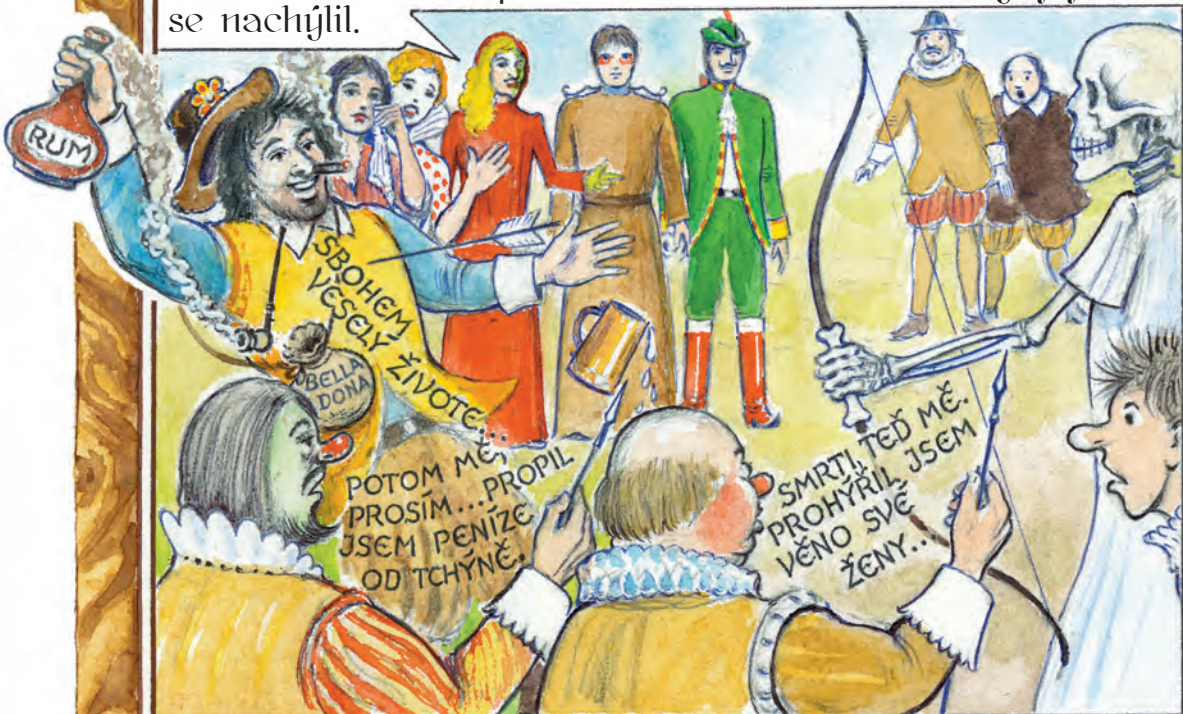 se nachýlil.
RUM
SBOHEM
VESELÝ ŽIVOTE...
BELLA
DONA
POTOM MĚ,
PROSÍM... PROPIL
JSEM PENÍZE
OD TCHÝNĚ.
SMRTI, TEĎ MĚ.
PROHÝŘIL JSEM
VĚNO SVÉ
ŽENY..